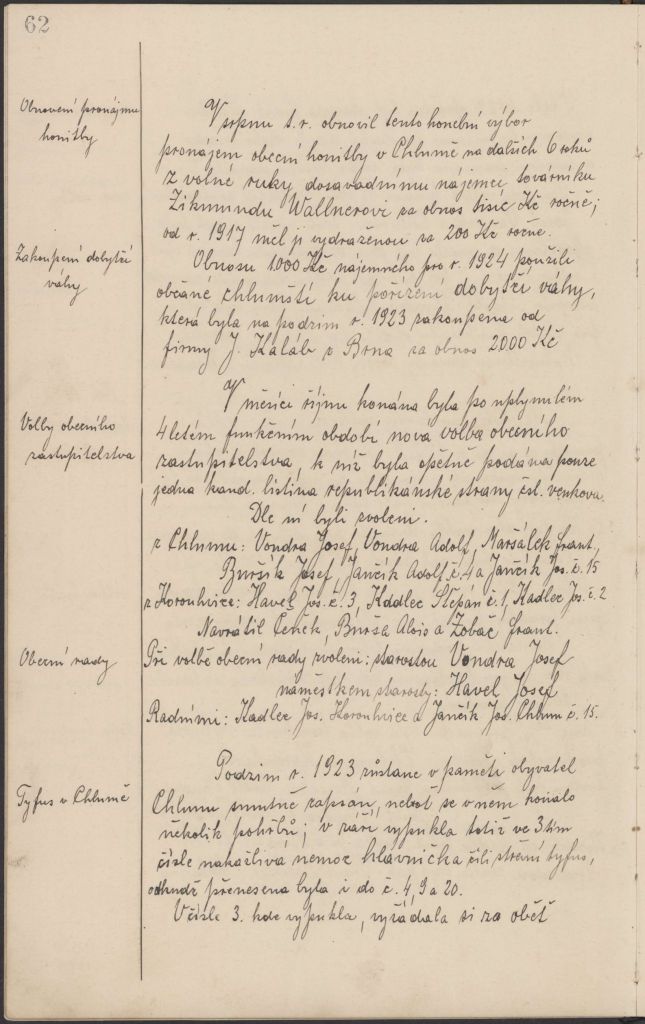 62
Obnovení pronájmu
honitby
V srpnu t. r. obnovil tento honební výbor
pronájem obecní honitby v Chlumě na dalších 6 roků
z volné ruky dosavadnímu nájemci továrníku
Zikmundu Wallnerovi za obnos tisíc Kč ročně;
od r. 1917 měl ji vydraženou za 200 Kč ročně.
Zakoupení dobytčí
váhy
Obnosu 1.000 Kč nájemného pro r. 1924 použili
občané chlumští ku pořízení dobytčí váhy,
která byla na podzim r. 1923 zakoupena od
firmy J. Kaláb z Brna za obnos 2000 Kč
Volby obecního
zastupitelstva
V měsíci říjnu konána byla po uplynulém
4letém funkčním období nova volba obecního
zastupitelstva, k níž byla opětně podána pouze
jedna kand. listina republikánské strany čsl. venkova.
Dle ní byli zvoleni.
z Chlumu: Vondra Josef, Vondra Adolf, Maršálek frant,
Buršík Josef, Jančík Adolf č. 4 a Jančík Jos. č. 15
z Korouhvice: Havel Jos. č. 3, Kadlec Štěpán č. 1, Kadlec Jos. č. 2
Navrátil Čeněk, Burša Alois a Zobač frant.
Obecní rady
Při volbě obecní rady zvoleni: starostou Vondra Josef
náměstkem starosty: Havel Josef
Radními: Kadlec Jos. Korouhvice a Jančík Jos. Chlum č. 15.
Tyfus v Chlumě
Podzim r. 1923 zůstane v paměti obyvatel
Chlumu smutně zapsán, neboť se v něm konalo
několik pohřbů; v září vypukla totiž ve 3tím
čísle nakažlivá nemoc hlavnička čili střevní tyfus,
odkudž přenesena byla i do č. 4, 9 a 20.
V čísle 3. kde vypukla, vyžádala si za oběť